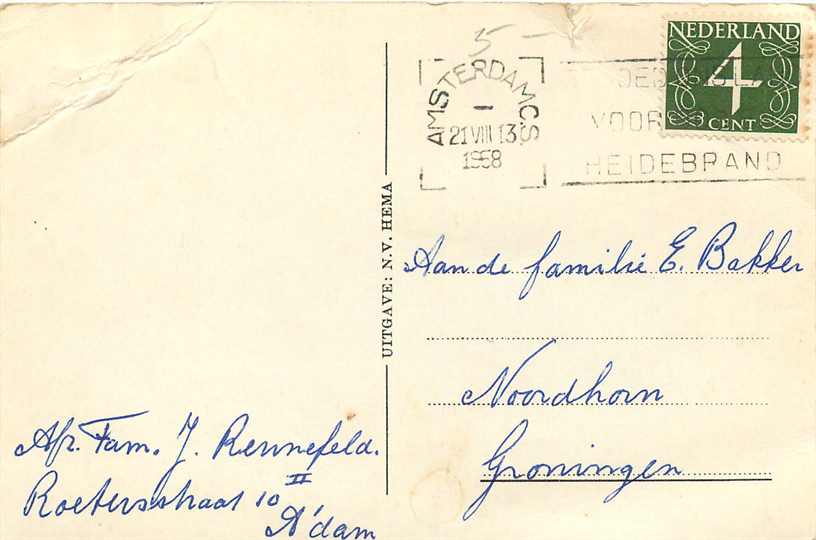 5 -
NEDERLAND
4
CENT
AMSTERDAM C.S
21 VIII 13
1958
VOOR
HEIDEBRAND
UITGAVE: N.V. HEMA
Aan de familie E. Bakker
Noordhorn
Groningen
Afz. Fam. J. Rennefeld.
Roetersstraat 10 II
A'dam